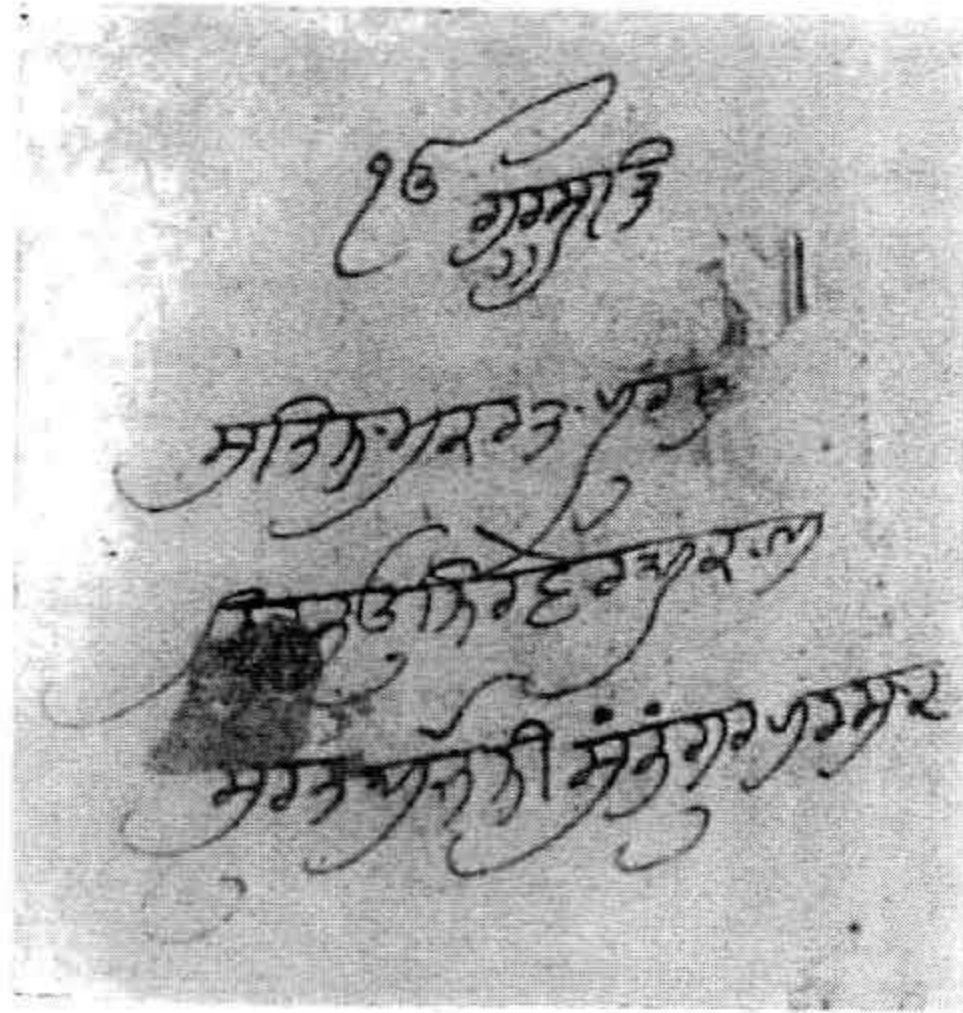 ੴ ਗੁਰਸਤਿ
ਸਤਿਨਾਮ ਕਰਤਾ ਪੁਰਖੁ
ਨਿਰਭਉ ਨਿਰਵੈਰ ਅਕਾਲ
ਮੂਰਤ ਅਜੂਨੀ ਸੰਭੰ ਗੁਰ ਪਰਸਾਦ